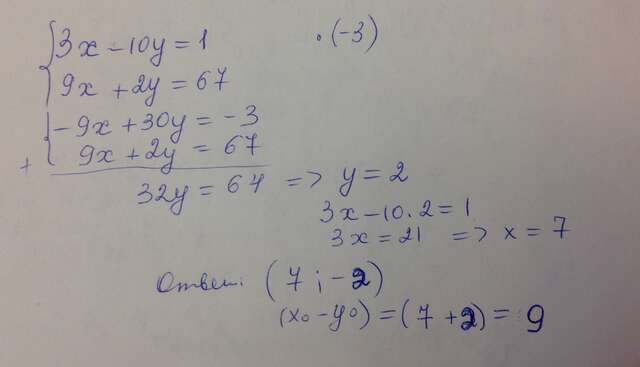 3x - 10y = 1 · (-3)
9x + 2y = 67
-9x + 30y = -3
+ 9x + 2y = 67
32y = 64 => y = 2
3x - 10 · 2 = 1
3x = 21 => x = 7
Ответ: (7 ; -2)
(x₀ - y₀) = (7 + 2) = 9